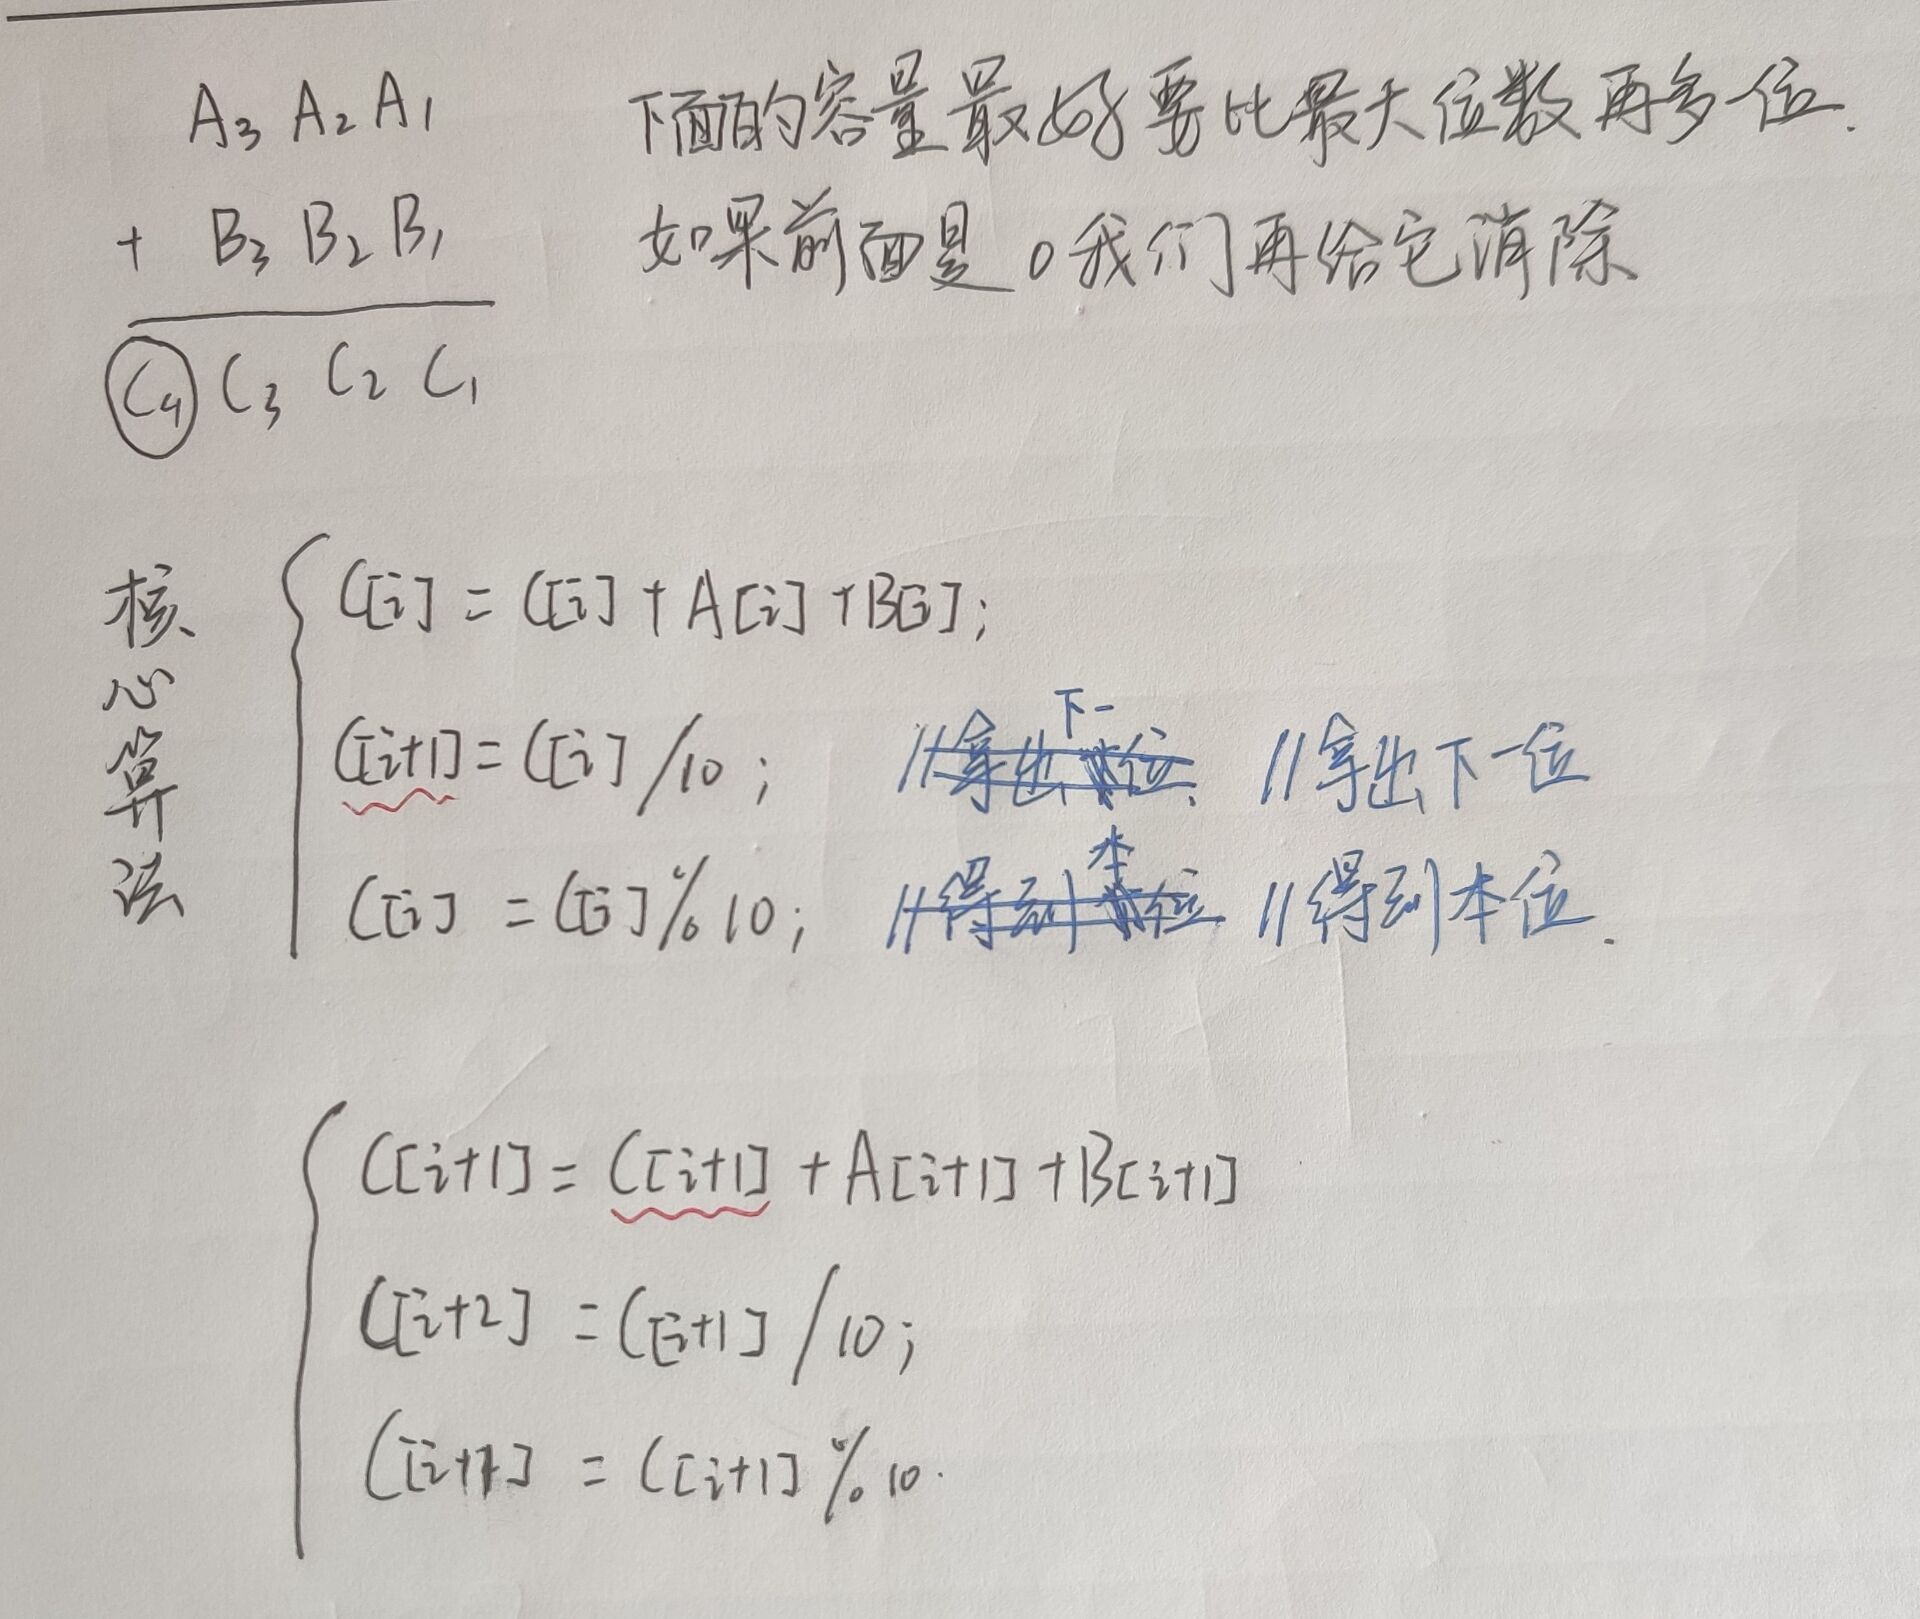 A3 A2 A1
+ B3 B2 B1
C4 C3 C2 C1
下面的容量最好要比最大位数再多一位.
如果前面是0我们再给它消除
核心算法
C[i] = C[i] + A[i] + B[i];
C[i+1] = C[i] / 10; //拿出下一位 //拿出下一位
C[i] = C[i] % 10; //得到本位 //得到本位.
C[i+1] = C[i+1] + A[i+1] + B[i+1]
C[i+2] = C[i+1] / 10;
C[i+1] = C[i+1] % 10.